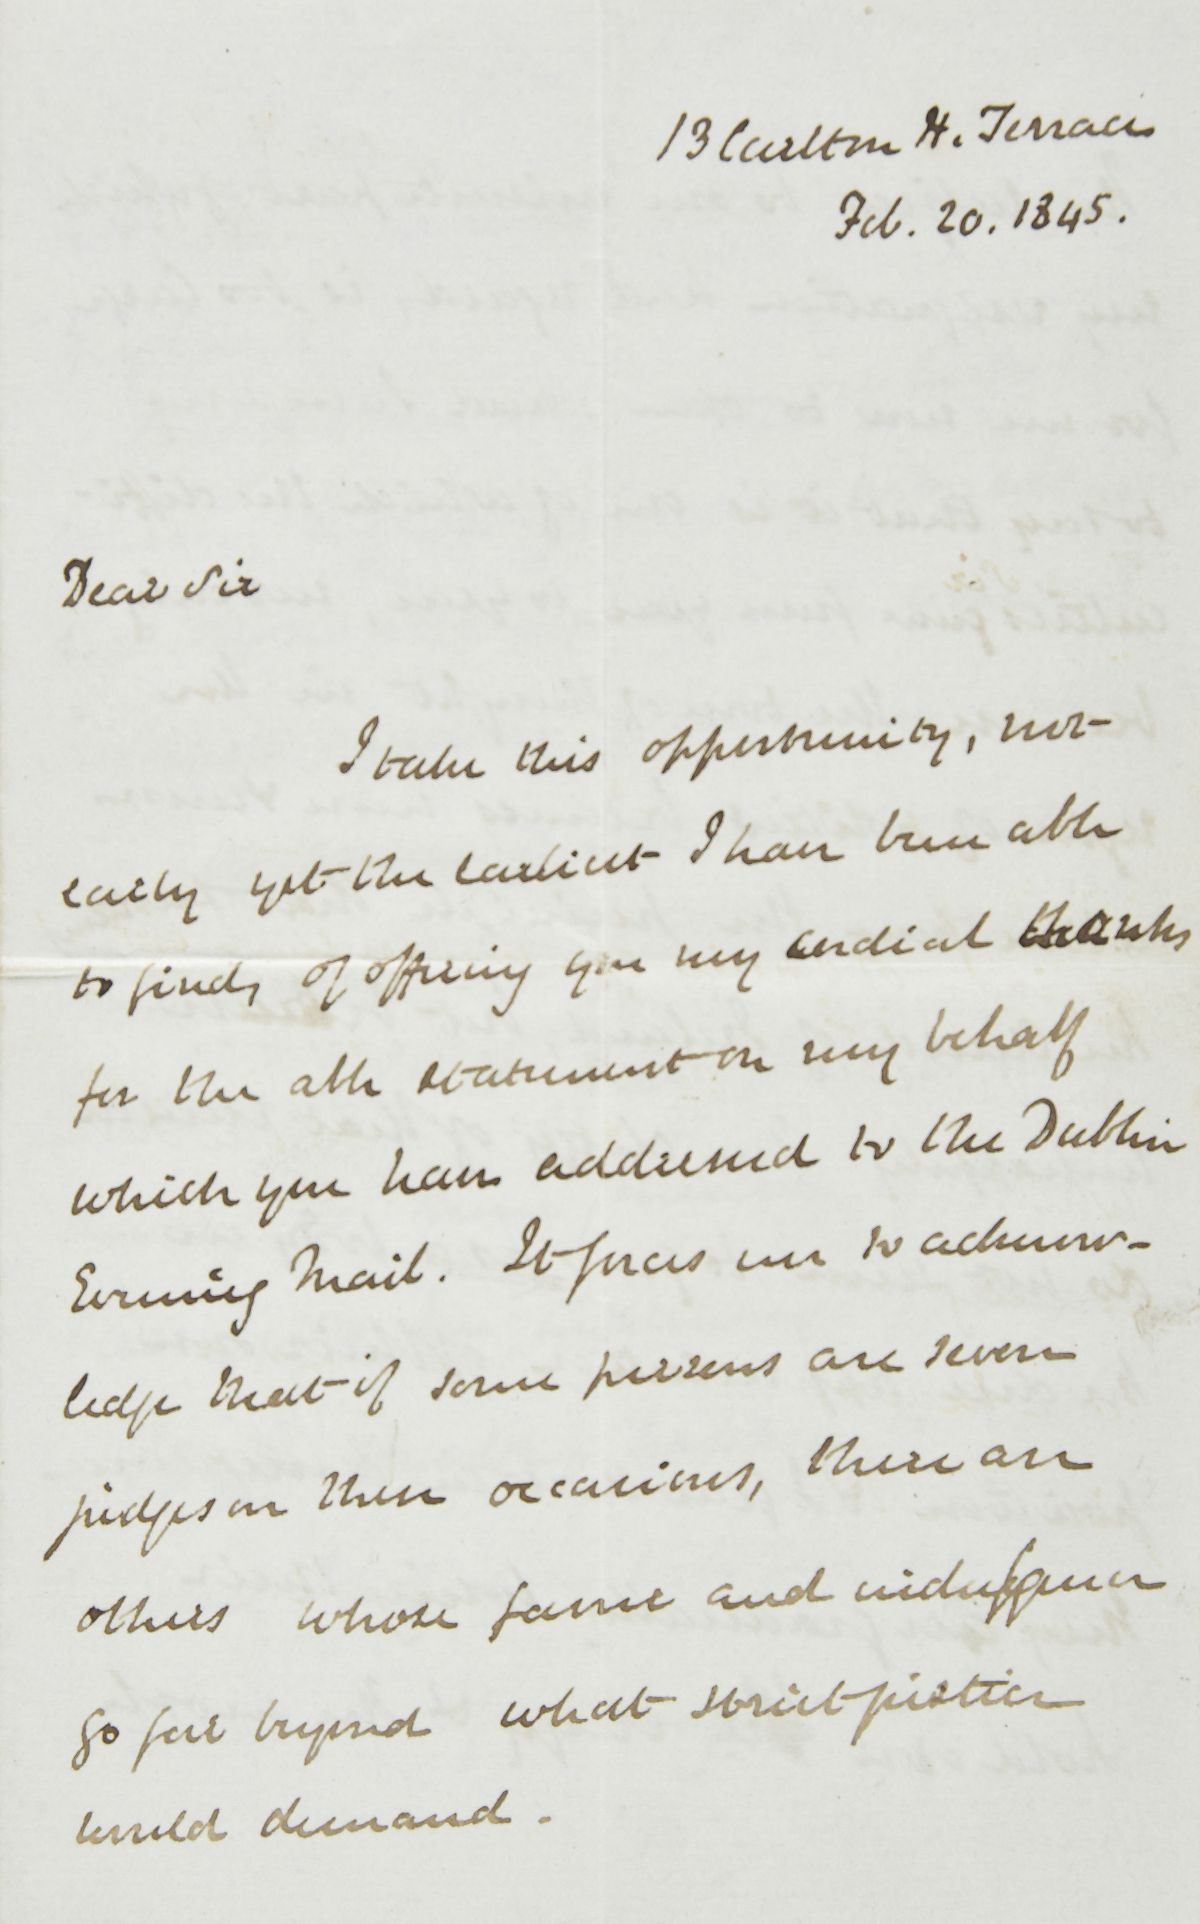 13 Carlton H. Terrace
Feb. 20. 1845.
Dear Sir
I take this opportunity, not
early yet the earliest I have been able
to find, of offering you my cordial thanks
for the able statement on my behalf
which you have addressed to the Dublin
Evening Mail. It forces me to acknow-
ledge that if some persons are severe
judges on these occasions, there are
others whose favour and indulgence
go far beyond what strict justice
would demand.